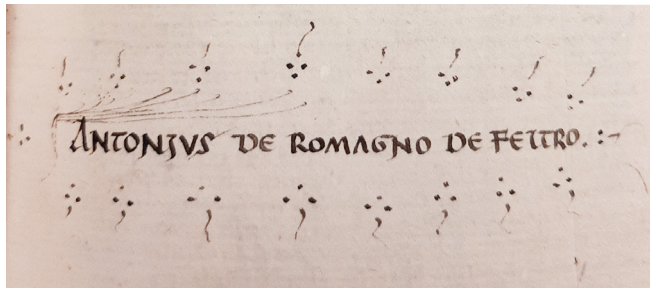 ANTONIVS DE ROMAGNO DE FELTRO. :-